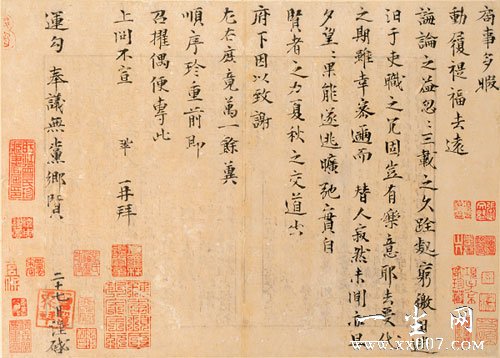 局事多暇
動履禔福去遠
誨論之益忽忽三載之久跧處窮徼日迷
汨于吏職之冗固豈有樂意耶去受代
之期雖幸密邇而替人寂然未聞亦旦
夕望望果能遂逃曠弛實自
賢者之力夏秋之交道出
府下因以致謝
左右庶竟萬一餘冀
順序珍重前即
召擢偶便專此
上問不宣 鞏 再拜
運勾奉議無黨鄉賢
二十七日謹啓
一生网
www.xx007.com